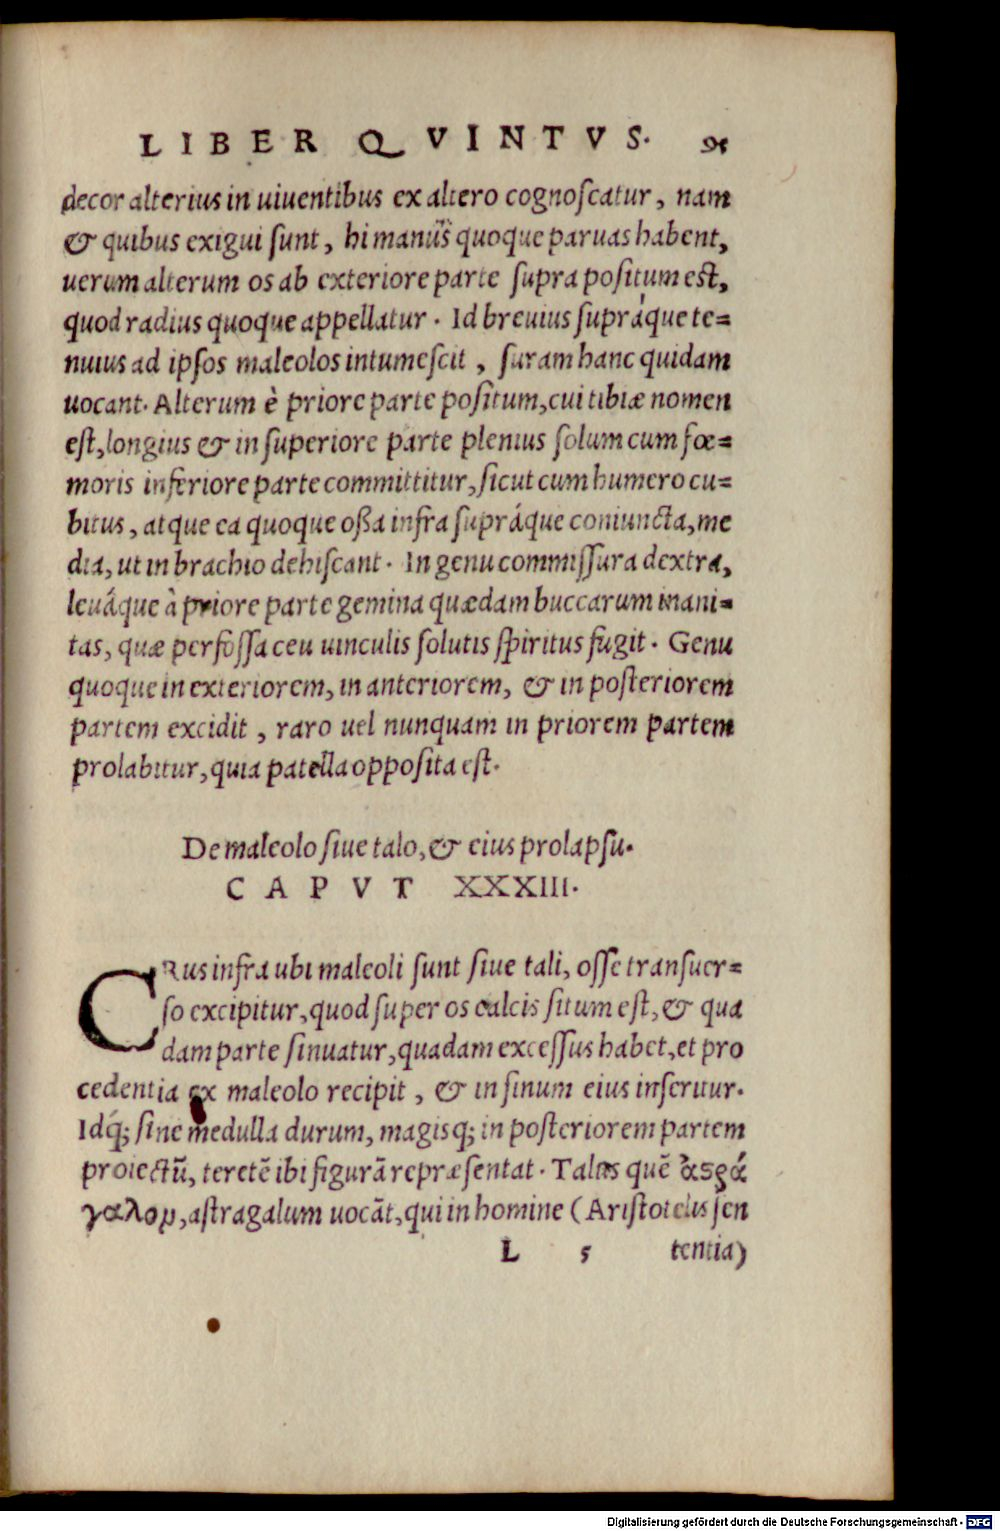 LIBER QVINTVS.
decor alterius in uiuentibus ex altero cognoscatur, nam
& quibus exigui sunt, hi manus quoque paruas habent,
uerum alterum os ab exteriore parte supra positum est,
quod radius quoque appellatur. Id breuius supráque te=
nuius ad ipsos maleolos intumescit, suram hanc quidam
uocant. Alterum è priore parte positum, cui tibiæ nomen
est, longius & in superiore parte plenius solum cum fœ=
moris inferiore parte committitur, sicut cum humero cu=
bitus, atque ea quoque oßa infra supráque coniuncta, me
dia, ut in brachio dehiscant. In genu commissura dextra,
leuáque à priore parte gemina quædam buccarum inani=
tas, quæ perfossa ceu uinculis solutis spiritus fugit. Genu
quoque in exteriorem, in anteriorem, & in posteriorem
partem excidit, raro uel nunquam in priorem partem
prolabitur, quia patella opposita est.
De maleolo siue talo, & eius prolapsu.
CAPVT XXXIII.
CRus infra ubi maleoli sunt siue tali, osse transuer=
so excipitur, quod super os calcis situm est, & qua
dam parte sinuatur, quadam excessus habet, et pro
cedentia ex maleolo recipit, & in sinum eius inseritur.
Idq́; sine medulla durum, magisq; in posteriorem partem
proiectũ, teretẽ ibi figurã repræsentat. Talos quẽ ἀςρά
γαλον, astragalum uocãt, qui in homine (Aristotelis sen
L 5 tentia)
Digitalisierung gefördert durch die Deutsche Forschungsgemeinschaft - DFG